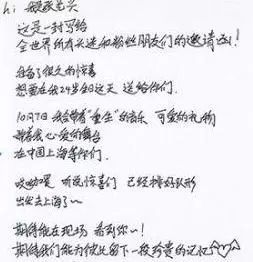 hi 我是芒头
这是一封写给
全世界所有头迷和粉丝朋友们的邀请函!
准备了很久的惊喜
想要在我24岁的这天 送给你们.
10月7日 我会带着"重生"的音乐 可爱的礼物
带着我心爱的舞台
在中国上海等你们.
哎呦喂 听说惊喜们 已经排好队形
出发去上海了~
期待能在现场 看到你~!
期待我们能为彼此留下一段珍贵的记忆